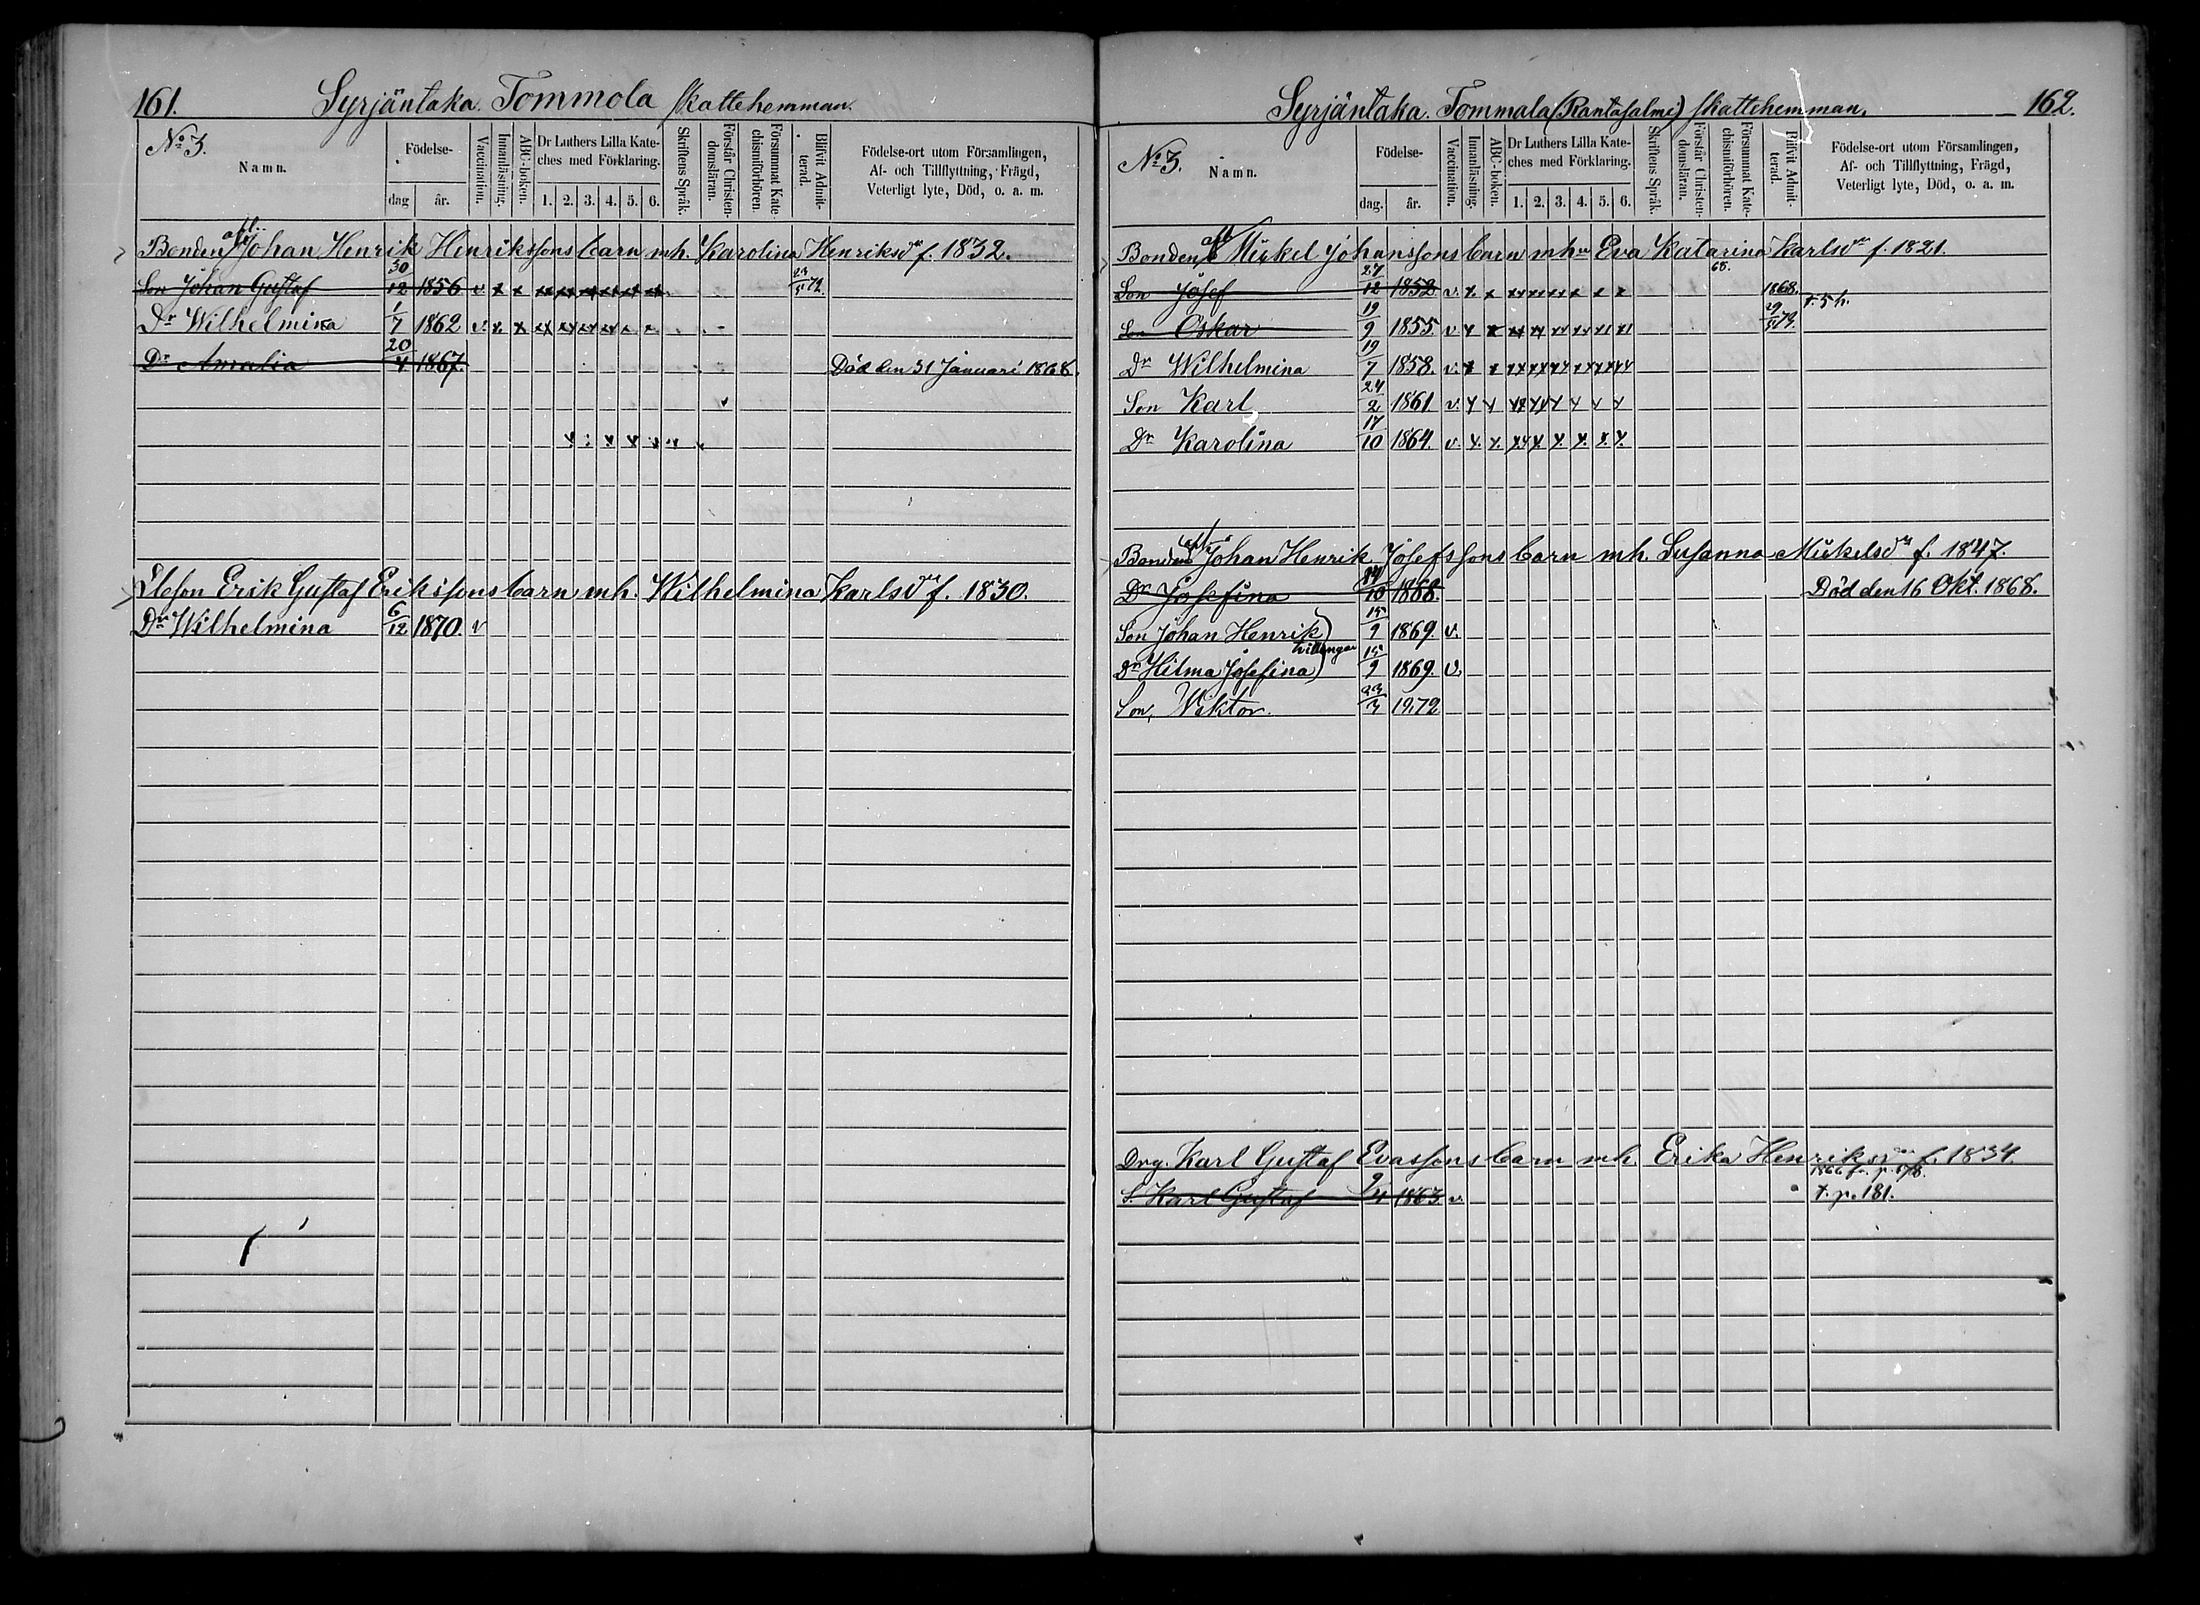 161. Syrjäntaka. Tommola skattehemman.
No 3.
Namn.
Födelse-
dag
år.
Vaccination.
Innanläsning.
ABC-boken.
Dr Luthers Lilla Kate-
ches med Förklaring.
1. 2. 3. 4. 5. 6.
Skriftens Språk.
Förstår Christen-
domsläran.
Försummat Kate-
chismiförhören.
Blifvit Admit-
terad.
Födelse-ort utom Församlingen,
Af- och Tillflyttning, Frägd,
Veterligt lyte, Död, o. a. m.
Bonden afl. Johan Henrik Henrikssons barn mh. Karolina Henriksdr f. 1832.
Son Johan Gustaf 30/12 1856 v. x x
Dr Wilhelmina 1/7 1862 v. x x
Dr Amalia 20/4 1867. Död den 31 Januari 1868.
Erik Gustaf Erikssons barn mh. Wilhelmina Karlsdr f. 1830.
Dr Wilhelmina 6/12 1870. v
Syrjäntaka. Tommala (Rantasalmi) skattehemman. 162.
No 3.
Namn.
Födelse-
dag.
år.
Vaccination.
Innanläsning.
ABC-boken.
Dr Luthers Lilla Kate-
ches med Förklaring.
1. 2. 3. 4. 5. 6.
Skriftens Språk.
Förstår Christen-
domsläran.
Försummat Kate-
chismiförhören.
Blifvit Admit-
terad.
Födelse-ort utom Församlingen,
Af- och Tillflyttning, Frägd,
Veterligt lyte, Död, o. a. m.
Bonden Mickel Johanssons barn mh Eva Katarina Karlsdr f. 1821.
Son Josef 27/12 1852 v. x. x 68. 1868.
Son Oskar 19/9 1855 v x x
Dr Wilhelmina 19/7 1858. v. x x
Son Karl 24/2 1861 v. x x
Dr Karolina 17/10 1864. v. x. x.
Bonden Johan Henrik Josefssons barn mh. Susanna Mickelsdr f. 1847.
Dr Josefina 10 1868. Död den 16 Okt. 1868.
Son Johan Henrik) 15/9 1869. v.
tvillingar
Dr Hilma Josefina) 15/9 1869. v.
Son, Viktor. 23/3 1872
Drg. Karl Gustaf Evassons barn mh. Erika Henriksdr f. 1834.
S. Karl Gustaf 9/4 1863. v. t. p. 181.